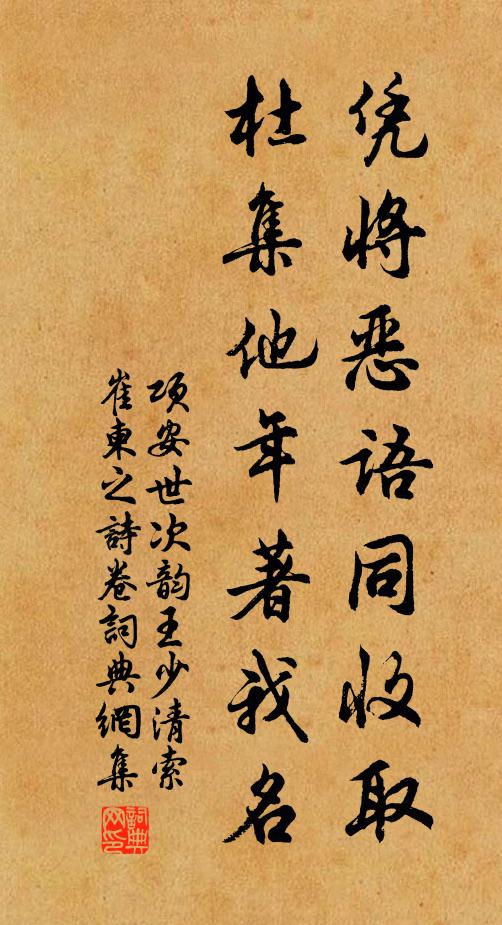 凭将恶语同收取
杜集他年著我名
项安世次韵王少清索
崔東之詩卷詞典網集
詞典网印